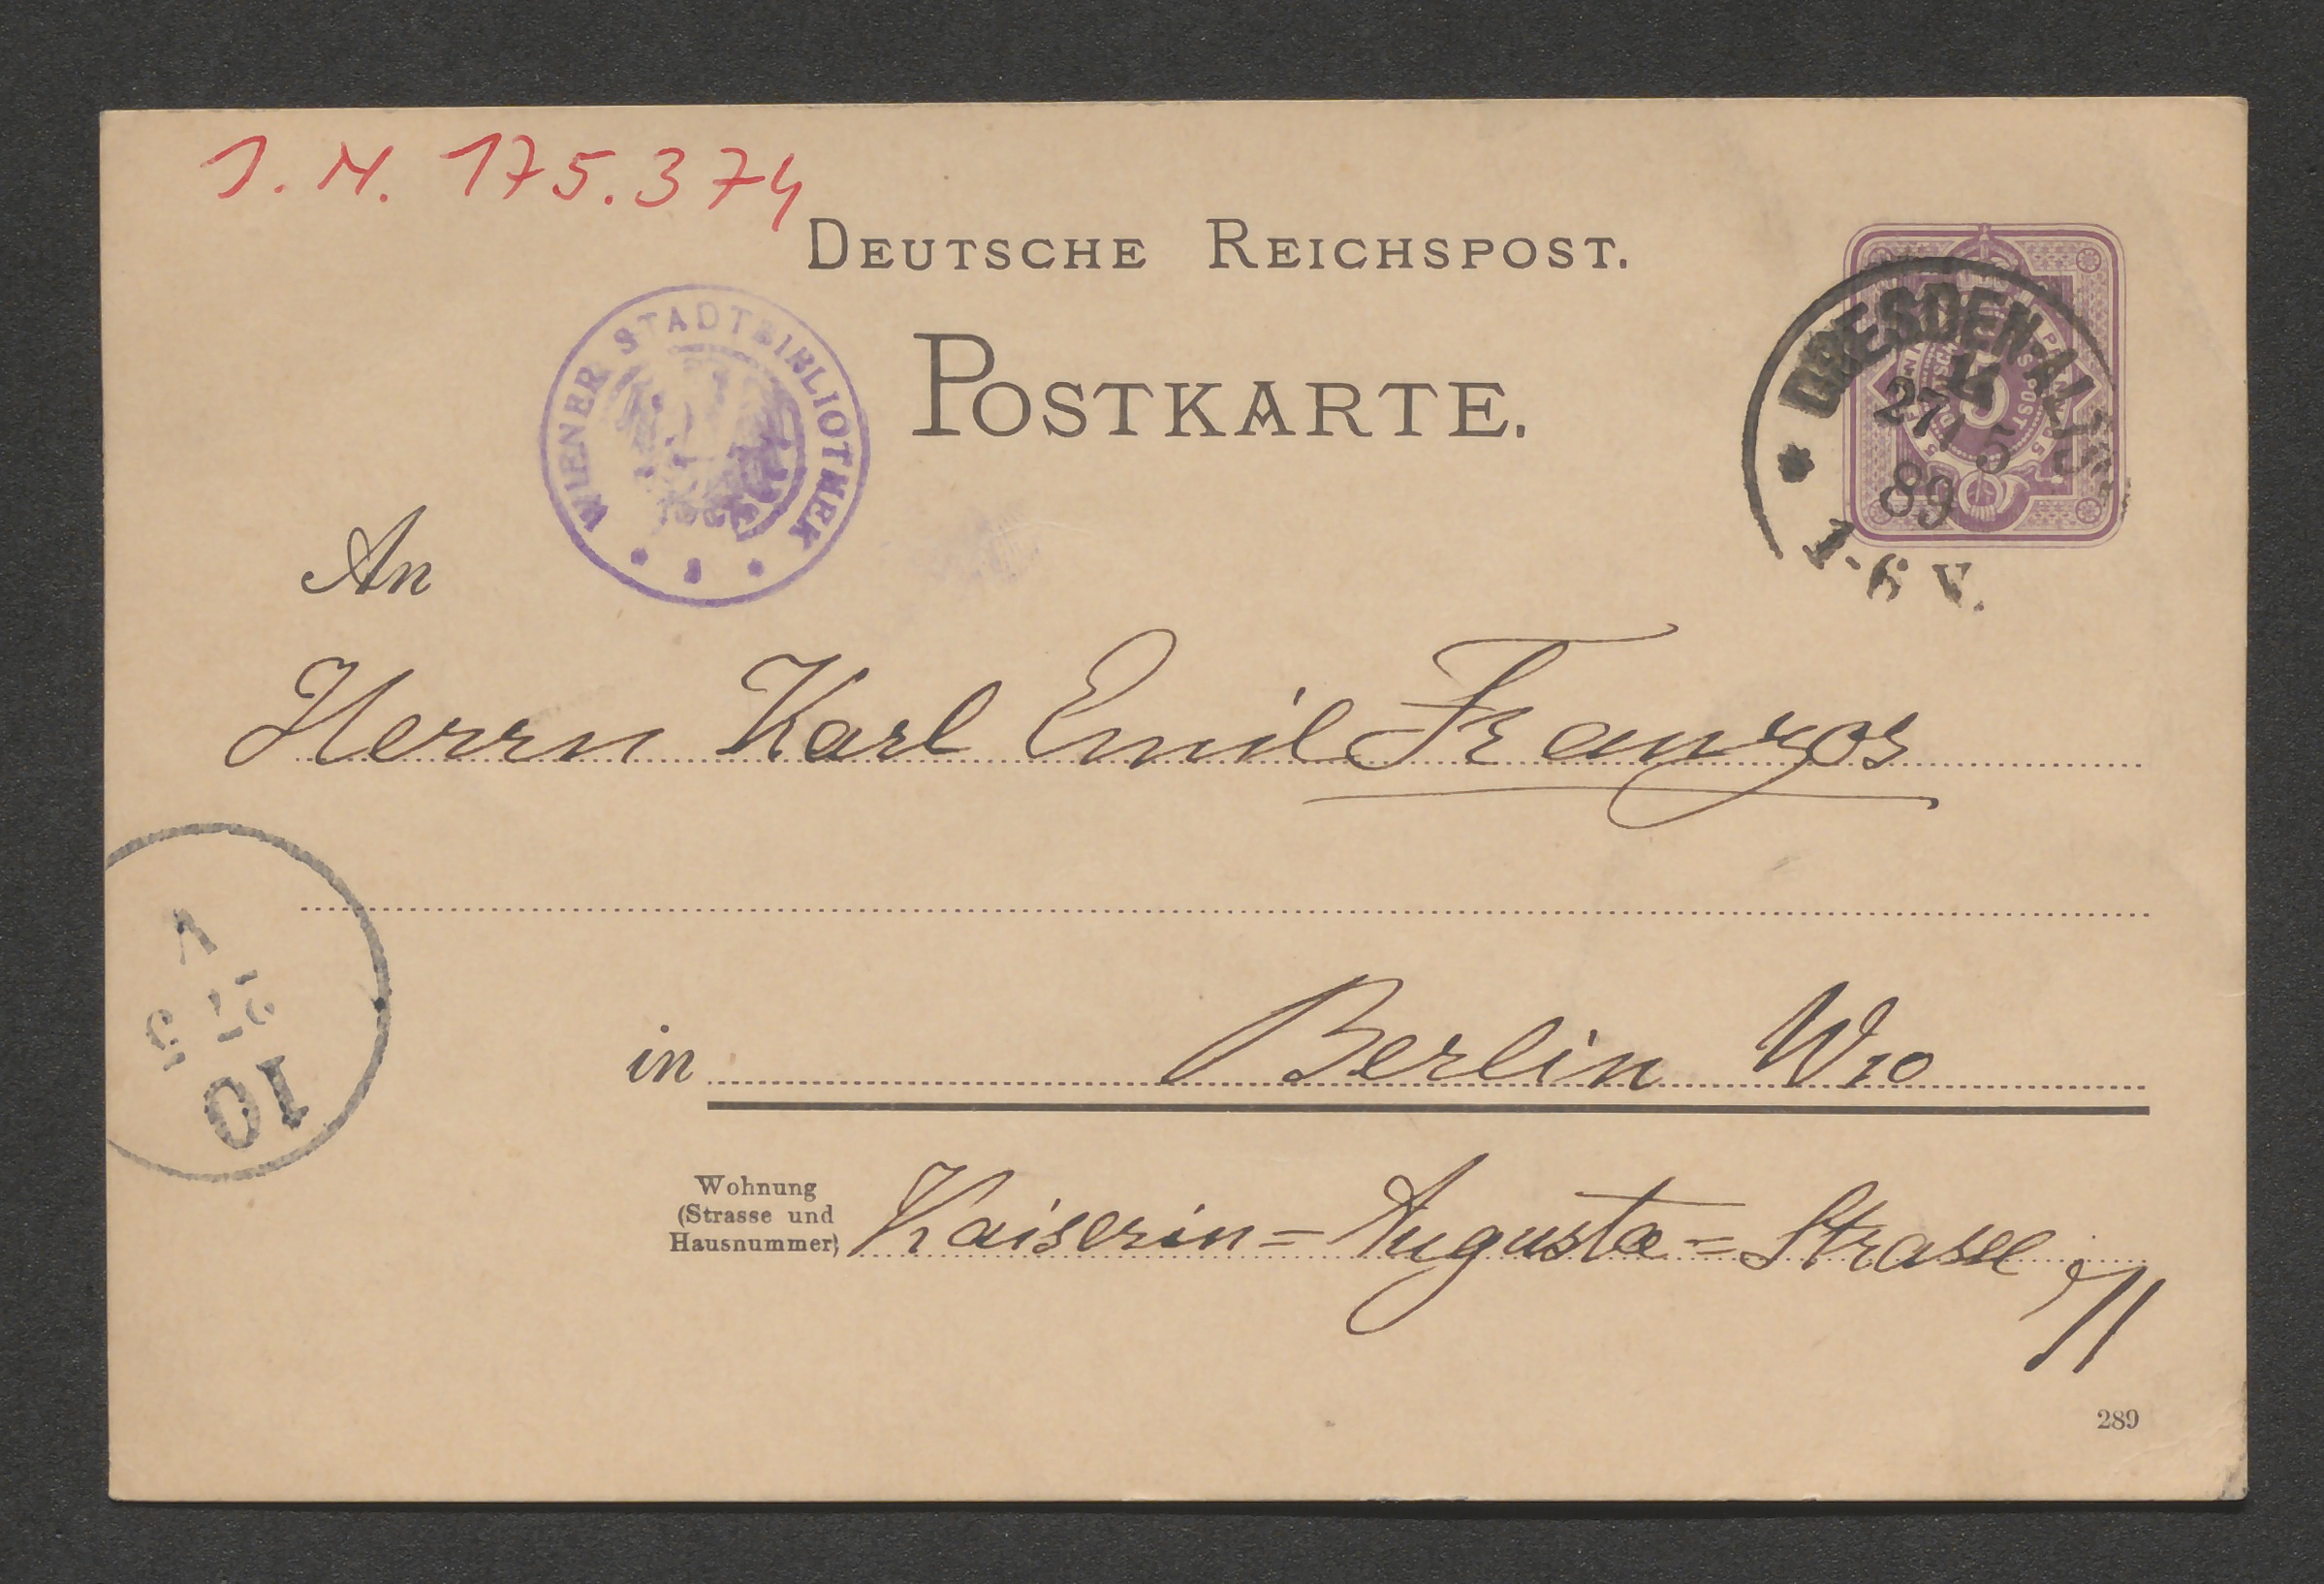 J. N. 175.374
DEUTSCHE REICHSPOST.
POSTKARTE.
WIENER STADTBIBLIOTHEK
DRESDEN-ALTST.
4
27 5
89
1-6 V.
An
Herrn Karl Emil Franzos
V
10
in Berlin W10
Wohnung
(Strasse und
Hausnummer)
Kaiserin=Augusta=Strasse
71
289